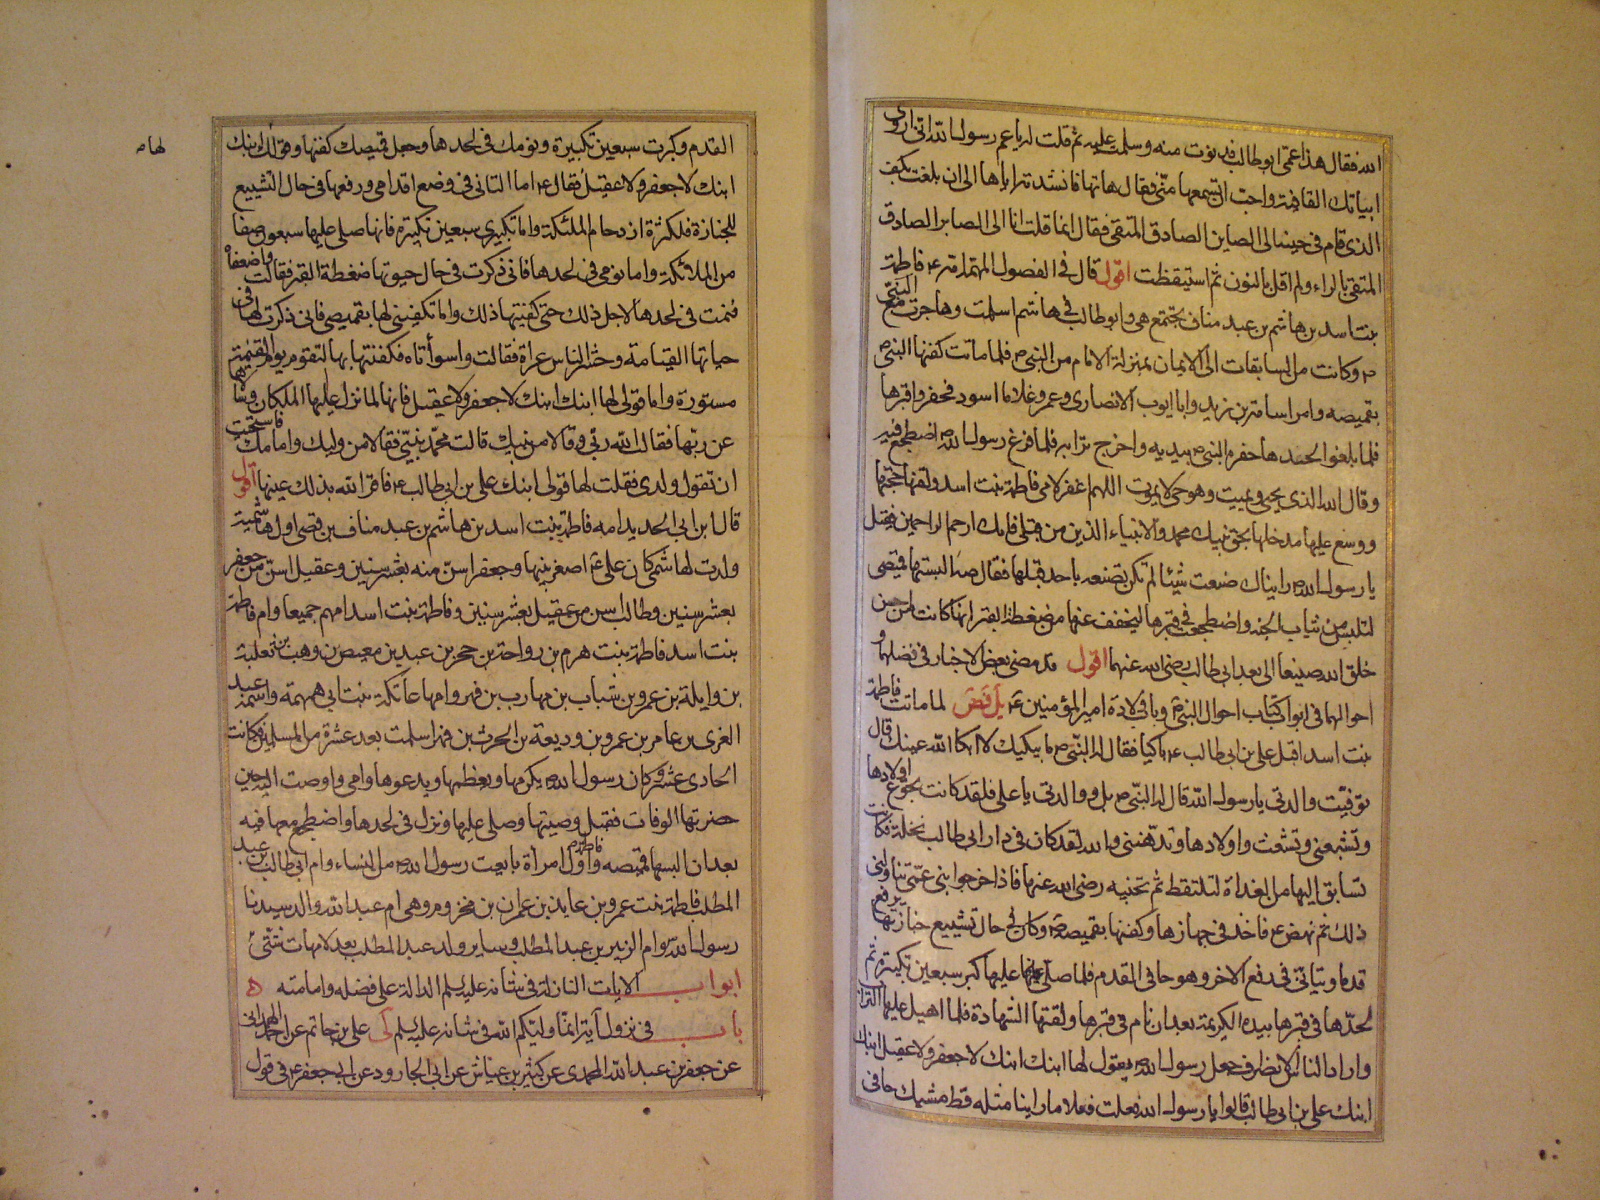 الله فقال هذا عمى ابو طالب فدنوت منه وسلمت عليه ثم قلت له يا عم رسول الله انى اروى
ابياتك القافية واحب ان تسمعها منى فقال هاتها فانشدته اياها الى ان بلغت بكف
الذى قام فى حينه الى الصاين الصادق المتقى فقال انما قلت انا الى الصابر الصادق
المتقى بالراء ولم اقل بالنون ثم استيقظت اقول قال فى الفصول المهمة امه ع فاطمة
بنت اسد بن هاشم بن عبد مناف تجتمع هى وابو طالب فى هاشم اسلمت وهاجرت مع النبى
ص وكانت من السابقات الى الايمان بمنزلة الام من النبى ص فلما ماتت كفنها النبى ص
بقميصه وامر اسامة بن زيد وابا ايوب الانصارى وعمر وغلاما اسود فحفروا قبرها
فلما بلغوا لحدها حفره النبى ص بيديه واخرج ترابه فلما فرغ رسول الله ص اضطجع فيه
وقال الله الذى يحيى ويميت وهو حى لا يموت اللهم اغفر لامى فاطمة بنت اسد ولقنها حجتها
ووسع عليها مدخلها بحق نبيك محمد والانبياء الذين من قبلى فانك ارحم الراحمين فقيل
يا رسول الله رايناك صنعت شيئا لم تكن تصنعه باحد قبلها فقال ص البستها قميصى
لتلبس من ثياب الجنة واضطجعت فى قبرها ليخفف عنها من ضغطة القبر انها كانت من احسن
خلق الله صنيعا الى بعد ابى طالب رضى الله عنهما اقول قد مضى بعض الاخبار فى فضلهما و
احوالهما فى ابواب كتاب احوال النبى ص وباب ولادة امير المؤمنين ع يل فض لما ماتت فاطمة
بنت اسد اقبل على بن ابى طالب ع باكيا فقال له النبى ص ما يبكيك لا ابكا الله عينك قال
توفيت والدتى يا رسول الله قال له النبى ص بل ووالدتى يا على فلقد كانت تجوع اولادها
وتشبعنى وتشعث اولادها وتدهننى والله لقد كان فى دار ابى طالب نخلة فكانت
تسابق اليها من الغداة لتلتقط ثم تجنيه رضى الله عنها فاذا خرجوا بنى عمى تناولنى
ذلك ثم نهض ع فاخذ فى جهازها وكفنها بقميصه ص وكان فى حال تشييع جنازتها يرفع
قدما ويتانى فى رفع الاخر وهو حافى القدم فلما صلى عليها كبر سبعين تكبيرة ثم
لحدها فى قبرها بيده الكريمة بعد ان نام فى قبرها ولقنها الشهادة فلما اهيل عليها التراب
واراد الناس الانصراف جعل رسول الله ص يقول لها ابنك ابنك ابنك لا جعفر ولا عقيل ابنك
ابنك على بن ابى طالب قالوا يا رسول الله فعلت فعلا ما راينا مثله قط مشيك حافى
القدم وكبرت سبعين تكبيرة ونومك فى لحدها وجعل قميصك كفنها وقولك لها ابنك
ابنك لا جعفر ولا عقيل فقال ع اما التانى فى وضع اقدامى ورفعها فى حال التشييع
للجنازة فلكثرة ازدحام الملئكة واما تكبيرى سبعين تكبيرة فانها صلى عليها سبعون صفا
من الملائكة واما نومى فى لحدها فانى ذكرت فى حال حيوتها ضغطة القبر فقالت واضعفاه
فنمت فى لحدها لاجل ذلك حتى كفيتها ذلك واما تكفينى لها بقميصى فانى ذكرت لها فى
حياتها القيامة وحشر الناس عراة فقالت واسوأتاه فكفنتها بها لتقوم يوم القيمة
مستورة واما قولى لها ابنك ابنك لا جعفر ولا عقيل فانها لما نزل عليها الملكان وسالاها
عن ربها فقالت الله ربى وقالا من نبيك قالت محمد نبيى فقالا من وليك وامامك فاستحيت
ان تقول ولدى فقلت لها قولى ابنك على بن ابى طالب ع فاقر الله بذلك عينها اقول
قال ابن ابى الحديد امه فاطمة بنت اسد بن هاشم بن عبد مناف بن قصى اول هاشمية
ولدت لهاشمى كان على ع اصغر بنيها وجعفر اسن منه بعشر سنين وعقيل اسن من جعفر
بعشر سنين وطالب اسن من عقيل بعشر سنين وفاطمة بنت اسد امهم جميعا وام فاطمة
بنت اسد فاطمة بنت هرم بن رواحة بن حجر بن عبد بن معيص بن وهب بن ثعلبة
بن وايلة بن عمرو بن شباب بن مهارب بن فهر وامها عاتكة بنت ابى همهمة واسمه عبد
العزى بن عامر بن عمرو بن وديعة بن الحرث بن فهر اسلمت بعد عشرة من المسلمين فكانت
الحادى عشر وكان رسول الله ص يكرمها ويعظمها ويدعوها وامى واوصت اليه حين
حضرتها الوفات فقبل وصيتها وصلى عليها ونزل فى لحدها واضطجع معها فيه
بعد ان البسها قميصه وفاطمة اول امرأة بايعت رسول الله ص من النساء وام ابى طالب بن عبد
المطلب فاطمة بنت عمرو بن عايذ بن عمران بن مخزوم وهى ام عبد الله والد سيدنا
رسول الله وام الزبير بن عبد المطلب وساير ولد عبد المطلب بعد لامهات شتى
ابواب الايات النازلة فى شانه عليه السلم الدالة على فضله وامامته
باب فى نزول آية انما وليكم الله فى شانه عليه السلم لى على بن حاتم عن احمد الهمدانى
عن جعفر بن عبد الله المحمدى عن كثير بن عياش عن ابى الجارود عن ابى جعفر ع فى قول